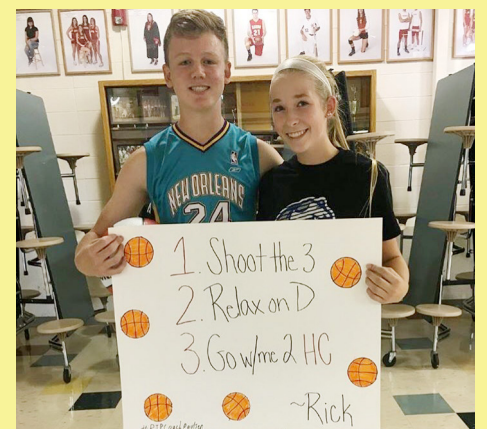 NBA
NEW ORLEANS
24
1. Shoot the 3
2. Relax on D
3. Go w/me 2 HC
~Rick